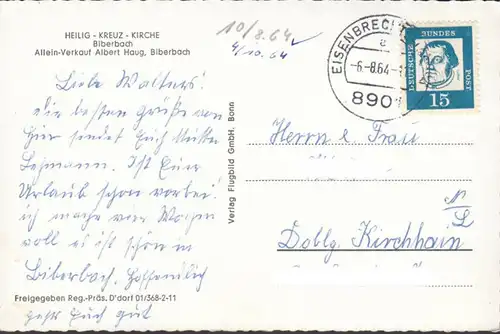 HEILIG - KREUZ - KIRCHE
Biberbach
Allein-Verkauf Albert Haug, Biberbach
10/8.64
4/10.64
EISENBRECHT
a
-6.-8.64-1
8901
DEUTSCHE BUNDESPOST
15
Liebe Walters!
die besten Grüße von
hier sendet Euch Mutter
Lehmann. Ist Euer
Urlaub schon vorbei?
ich mache vier Wochen
voll es ist schön in
Biberbach. Hoffentlich
geht Euch gut
Verlag Flugbild GmbH. Bonn
Herrn u Frau
N/L
Doblg. Kirchhain
Freigegeben Reg.-Präs. D'dorf 01/368-2-11